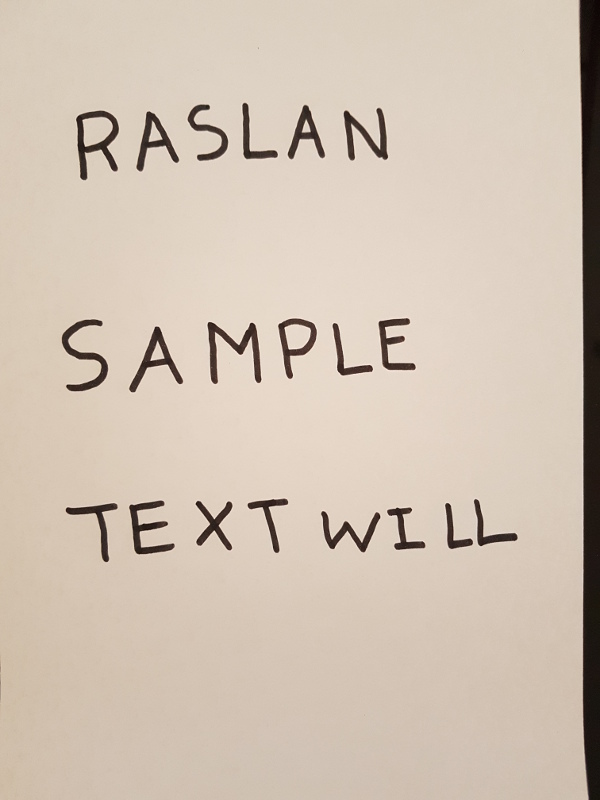 RASLAN
SAMPLE
TEXT WILL